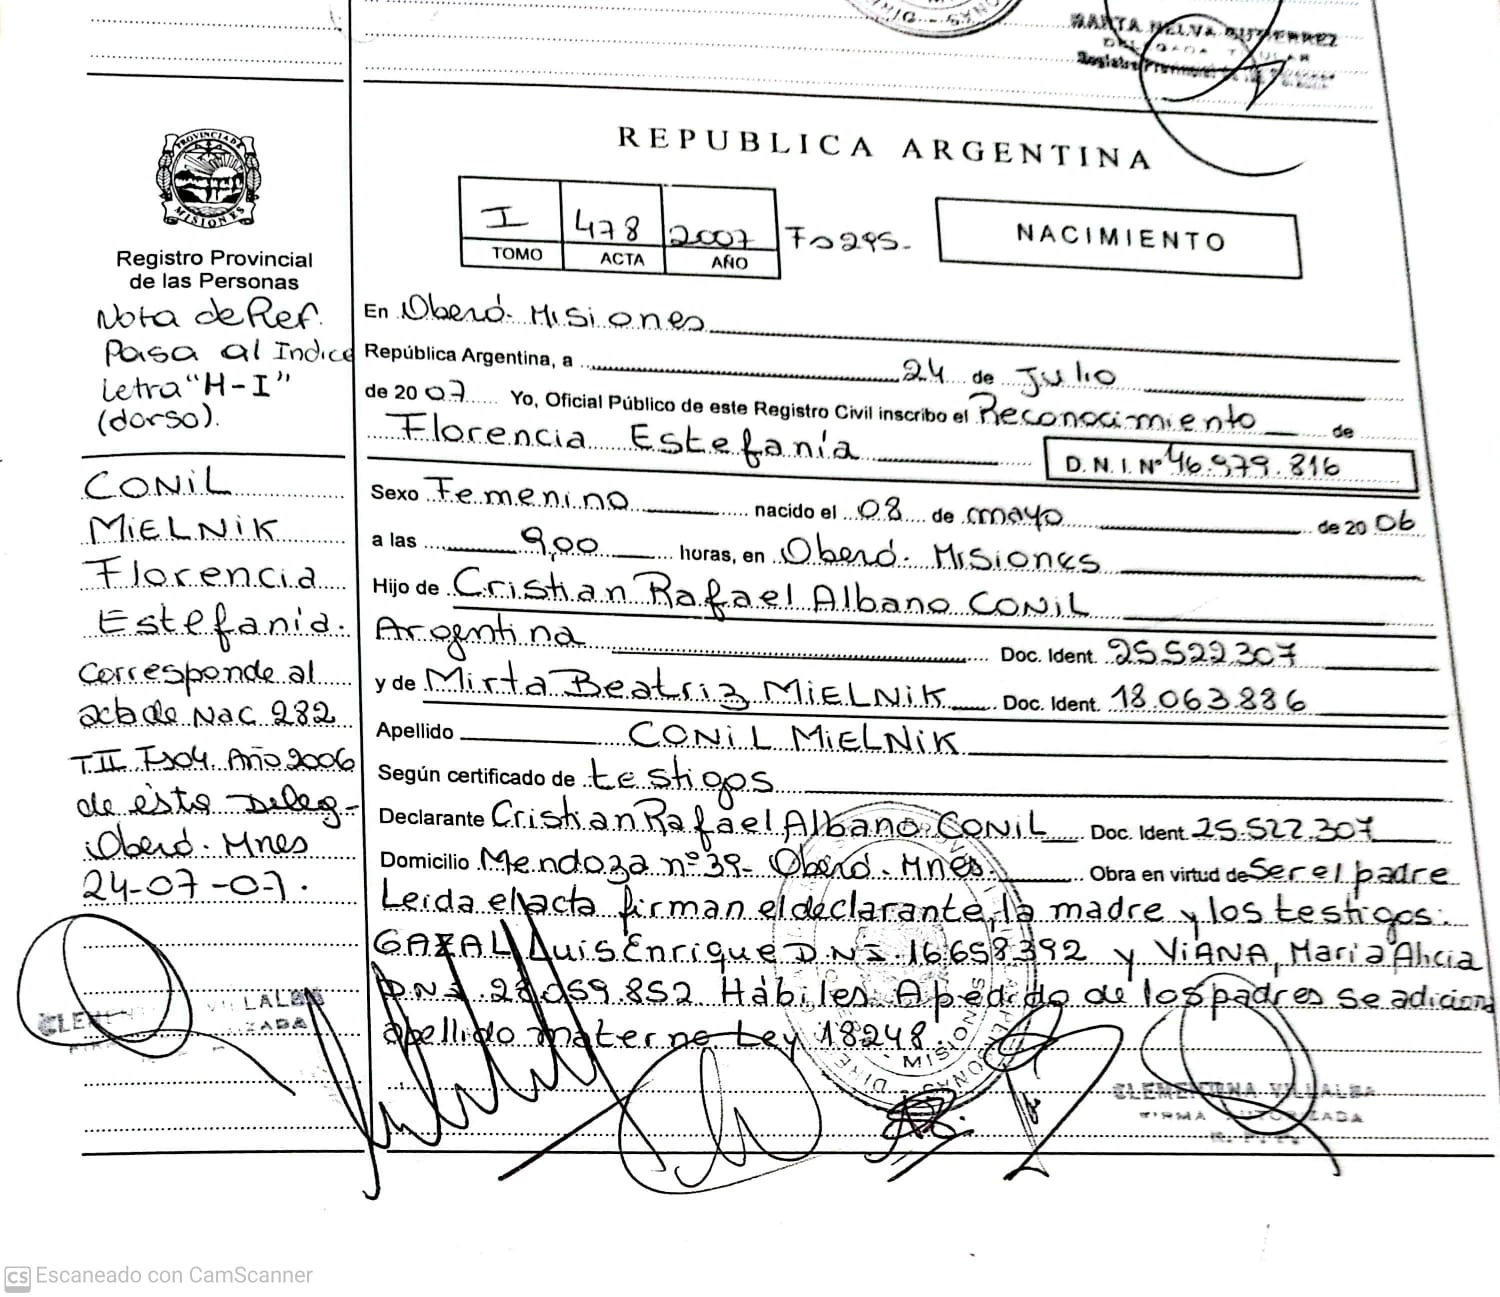 MARTA NELVA GUTIERREZ
DELEGADA TITULAR
REPUBLICA ARGENTINA
PROVINCIA DE
MISIONES
Registro Provincial
de las Personas
I 478 2007 Fo 295.
TOMO ACTA AÑO
NACIMIENTO
Nota de Ref.
Pasa al Indice
Letra "H-I"
(dorso).
CONiL
MiELNiK
Florencia
Estefanía.
Corresponde al
acta de Nac 282
T II Fs 04 Año 2006
de ésta Deleg-
Oberá. Mnes
24-07-07.
En Oberá. Misiones
República Argentina, a 24 de Julio
de 2007 Yo, Oficial Público de este Registro Civil inscribo el Reconocimiento de
Florencia Estefanía D.N.I. Nº 46.979.816
Sexo Femenino nacido el 08 de mayo de 2006
a las 9,00 horas, en Oberá. Misiones
Hijo de Cristian Rafael Albano CONiL
Argentina Doc. Ident. 25.522.307
y de Mirta Beatriz MiELNiK Doc. Ident. 18.063.836
Apellido CONiL MiELNiK
Según certificado de testigos
Declarante Cristian Rafael Albano CONiL Doc. Ident. 25.522.307
Domicilio Mendoza nº 39- Oberá. Mnes. Obra en virtud de Ser el padre
Leida el acta firman el declarante, la madre y los testigos:
GAZAL Luis Enrique D.N.I. 16.658.392 y ViANA, Maria Alicia
D.N.I. 28.059.852 Hábiles. A pedido de los padres se adiciona
apellido materno Ley 18248.
MISIONES
CLEMENTINA VILLALBA
FIRMA AUTORIZADA
CLEMENTINA VILLALBA
FIRMA AUTORIZADA
R. P. P.
CS Escaneado con CamScanner